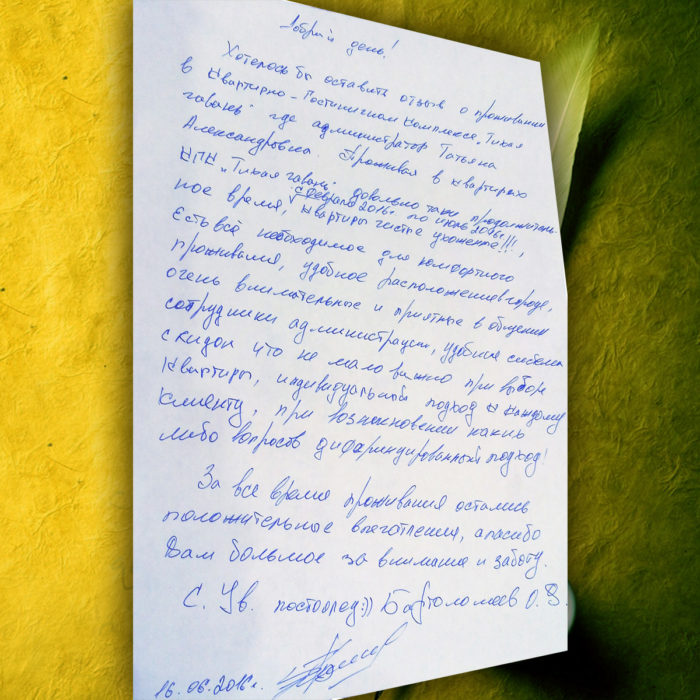 Добрый день!
Хотелось бы оставить отзыв о проживании
в Квартирно-Гостиничном комплексе „Тихая
гавань" где администратор Татьяна
Александровна. Проживая в квартирах
КГК „Тихая гавань" довольно таки продолжитель-
с февраля 2016г. по июнь 2016г.
ное время, квартиры чистые ухоженные!!!,
Есть всё необходимое для комфортного
проживания, удобное расположение в городе,
очень внимательные и приятные в общении
сотрудники администрации, удобная система
скидок что не мало важно при выборе
квартиры, индивидуальный подход к каждому
клиенту, при возникновении каких
либо вопросов дифариндированный подход!
За все время проживания остались
положительные впечотления, спасибо
Вам большое за внимание и заботу.
С. Ув. постоялец:)) Бартоломеев О.В.
16.06.2016г.